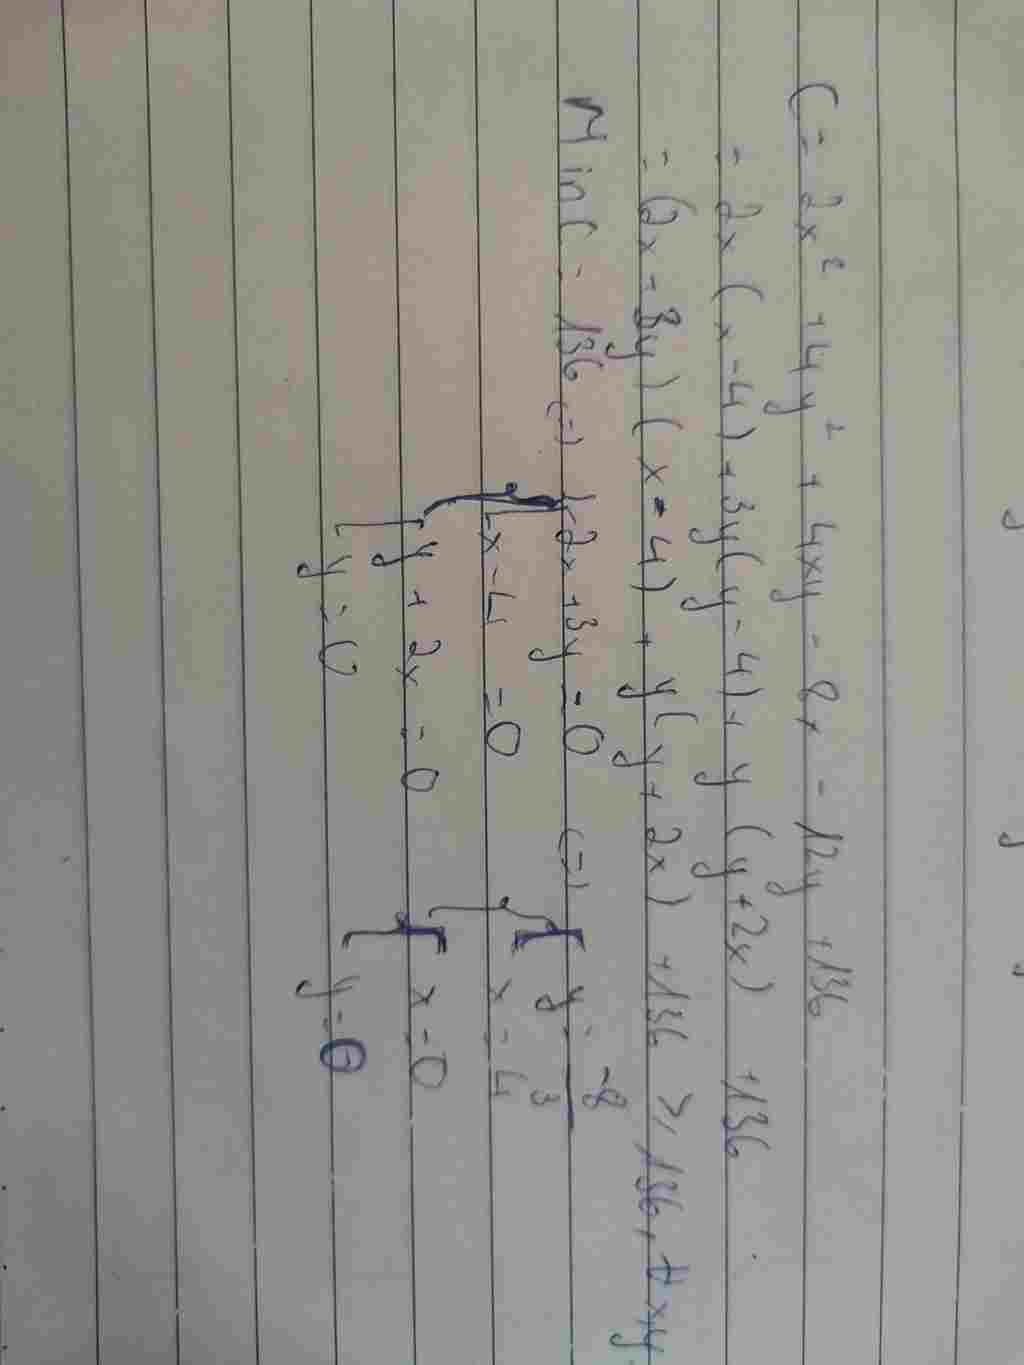 C = 2x² + 4y² + 4xy - 8x - 12y + 136
= 2x(x - 4) + 3y(y - 4) + y(y + 2x) + 136
= (2x + 3y)(x - 4) + y(y + 2x) + 136 ≥ 136, ∀ x, y
Min C = 136 (=) 2x + 3y = 0 (=) y = -8/3
x - 4 = 0 x = 4
y + 2x = 0 x = 0
y = 0 y = 0